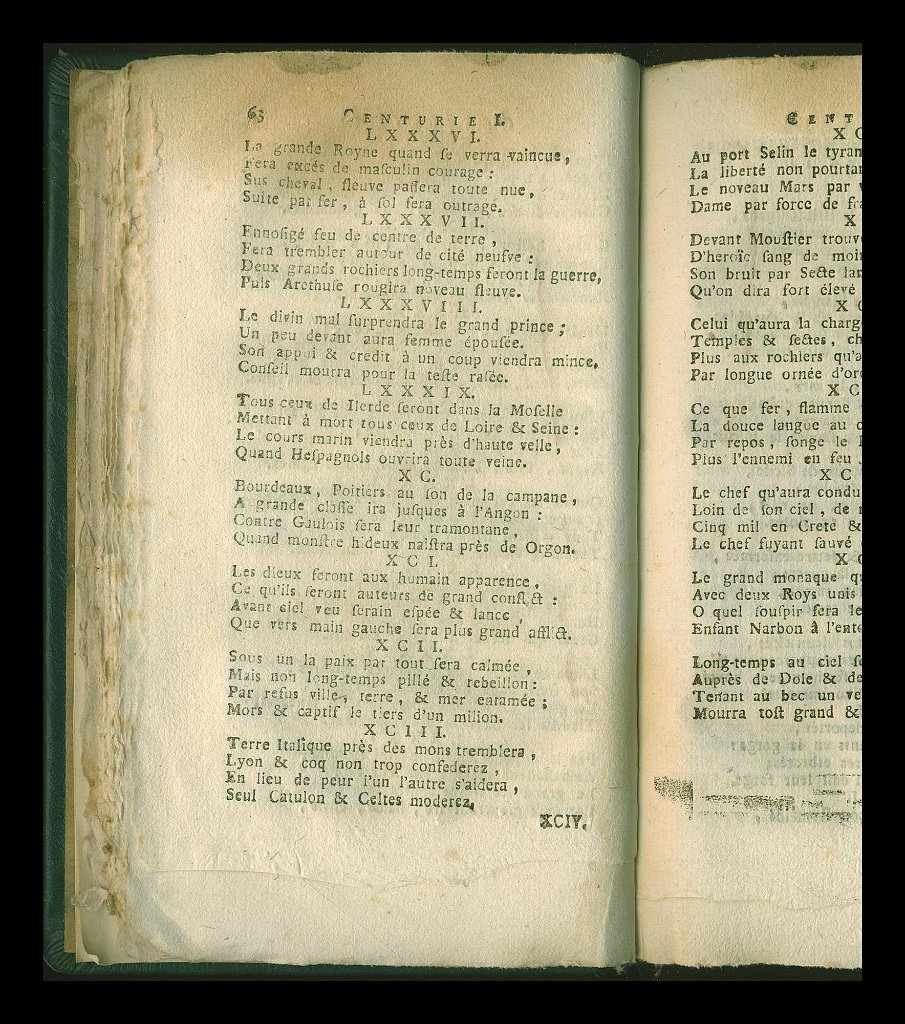 63 CENTURIE I.
LXXXVI.
La grande Royne quand ſe verra vaincue,
Fera excés de maſculin courage :
Sus cheval, fleuve paſſera toute nue,
Suite par fer, à ſol ſera outrage.
LXXXVII.
Ennoſigé feu de centre de terre,
Fera trembler autour de cité neufve :
Deux grands rochiers long-temps feront la guerre,
Puis Arethuſe rougira noveau fleuve.
LXXXVIII.
Le divin mal ſurprendra le grand prince ;
Un peu devant aura femme épouſée.
Son appui & credit à un coup viendra mince,
Conſeil mourra pour la teſte raſée.
LXXXIX.
Tous ceux de Ilerde ſeront dans la Moſelle
Mettant à mort tous ceux de Loire & Seine :
Le cours marin viendra près d'haute velle,
Quand Heſpagnols ouvrira toute veine.
XC.
Bourdeaux, Poitiers au ſon de la campane,
A grande claſſe ira juſques à l'Angon :
Contre Gaulois ſera leur tramontane,
Quand monſtre hideux naiſtra près de Orgon.
XCI.
Les dieux feront aux humain apparence,
Ce qu'ils ſeront auteurs de grand conflict :
Avant ciel veu ſerain eſpée & lance,
Que vers main gauche ſera plus grand afflict.
XCII.
Sous un la paix par tout ſera calmée,
Mais non long-temps pillé & rebeillon :
Par refus ville, terre, & mer entamée ;
Mors & captif le tiers d'un milion.
XCIII.
Terre Italique près des mons tremblera,
Lyon & coq non trop confederez,
En lieu de peur l'un l'autre s'aidera,
Seul Catulon & Celtes moderez.
XCIV.
CENT
XC
Au port Selin le tyran
La liberté non pourtan
Le noveau Mars par
Dame par force de
X
Devant Mouſtier trouv
D'heroïc ſang de moi
Son bruit par Secte
Qu'on dira fort élevé
XC
Celui qu'aura la charg
Temples & ſectes, ch
Plus aux rochiers qu'a
Par longue ornée d'or
XC
Ce que fer, flamme
La douce langue au
Par repos, ſonge le
Plus l'ennemi en feu
XC
Le chef qu'aura condu
Loin de ſon ciel, de
Cinq mil en Crete &
Le chef fuyant ſauvé
XC
Le grand monaque
Avec deux Roys unis
O quel ſouſpir fera le
Enfant Narbon à l'ente
Long-temps au ciel
Auprès de Dole & de
Tenant au bec un ve
Mourra toſt grand &